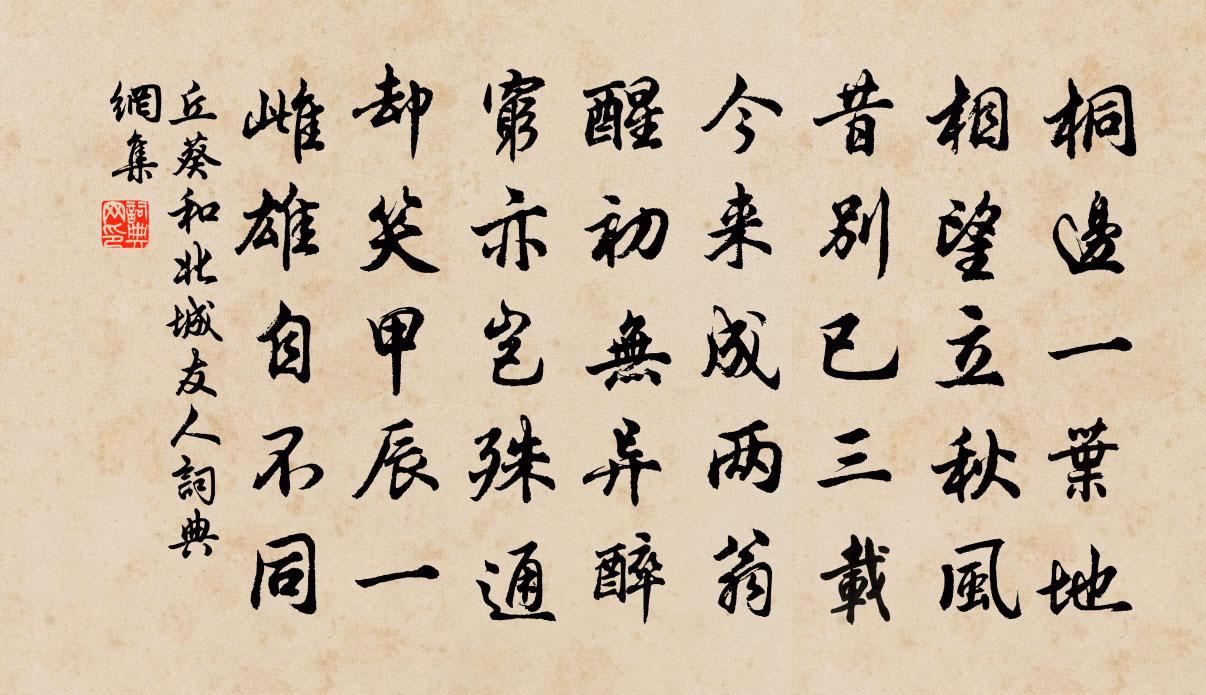 桐邊一葉地
相望立秋風
昔別已三載
今来成两翁
醒初無异醉
窮亦岂殊通
却笑甲辰一
雌雄自不同
丘葵和北城友人詞典
網集
詞典
网印